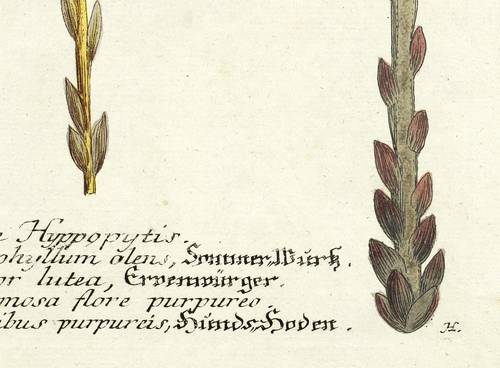 Hyppopytis.
phyllum olens, Sommer-Wurtz.
or lutea, Ervenwürger.
mosa flore purpureo.
ibus purpureis, Hunds-Hoden.
H.